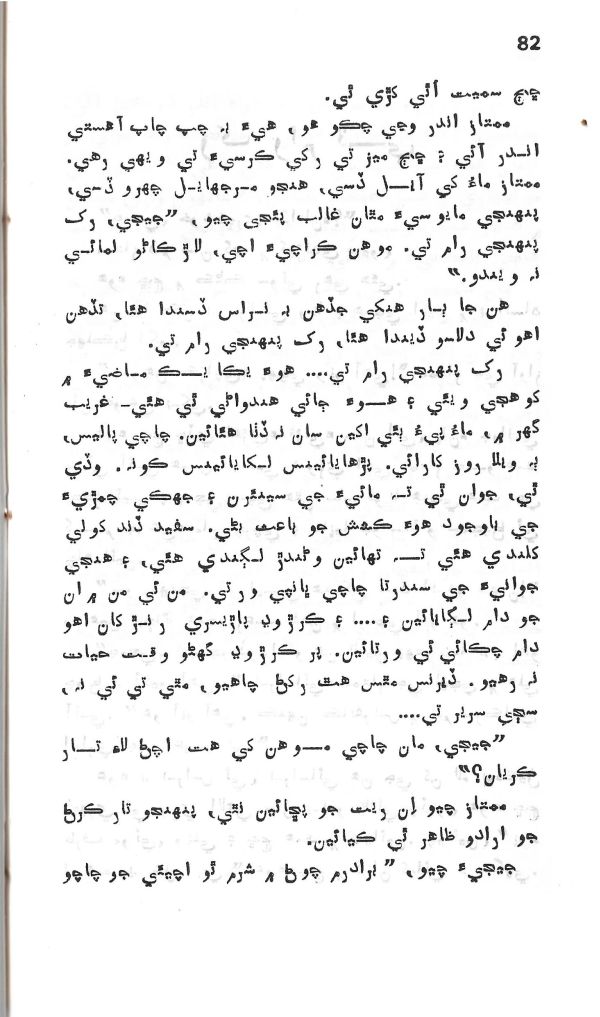 82
چنڇ سميت اُٿي کڙي ٿي.
ممتاز اندر وڃي چڪو هو، هيءَ بہ چپ چاپ آهستي
اندر آئي ۽ چنڇ ميز تي رکي ڪرسيءَ تي ويهي رهي.
ممتاز ماءُ کي آيل ڏسي، هنجو مرجهايل چهرو ڏسي،
پنهنجي مايوسيءَ مٿان غالب پئجي چيو، ”جيجي، رک
پنهنجي رام تي. موهن ڪراچيءَ اچي، لاڙڪاڻو لمائي
نہ ويندو.“
هن جا ٻار هنکي جڏهن بہ نراس ڏسندا هئا، تڏهن
اهو ئي دلاسو ڏيندا هئا، رک پنهنجي رام تي.
رک پنهنجي رام تي.... هوءَ يڪا يڪ ماضيءَ ۾
کوهجي ويئي ۽ هوءَ ڄائي هندواڻي ئي هئي۔ غريب
گهر ۾، ماءُ پيءُ ٻئي اکين سان نہ ڏٺا هئائين. چاچي پاليس،
بہ ويلا روز کارائي. پڙهايائينس لکايائينس ڪونہ. وڏي
ٿي، جوان ٿي تہ مائيءَ جي سينئرن ۽ جهڪي چمڙيءَ
جي باوجود هوءَ ڪشش جو باعث بڻي. سفيد ڏند کولي
کلندي هئي تہ تهائين وڻندڙ لڳندي هئي، ۽ هنجي
جوانيءَ جي سندرتا چاچي ڀانپي ورتي. من ئي من ۾ ان
جو دام لڳايائين ۽.... ۽ ڪرڙوڍ پاڙيسري رنڙ کان اهو
دام چڪائي ئي ورتائين. پر ڪرڙوڍ گهڻو وقت حيات
نہ رهيو. ڏيرنس مٿس هٿ رکڻ چاهيو، مٿي تي ئي نہ،
سڄي سرير تي....
”جيجي، مان چاچي موهن کي هت اچڻ لاءِ تار
ڪريان؟“
ممتاز چيو اِن ريت جو پڇائين نٿي، پنهنجو تار ڪرڻ
جو ارادو ظاهر ٿي ڪيائين.
جيجيءَ چيو، ”برادرم چوڻ ۾ شرم ٿو اچيئي جو چاچو